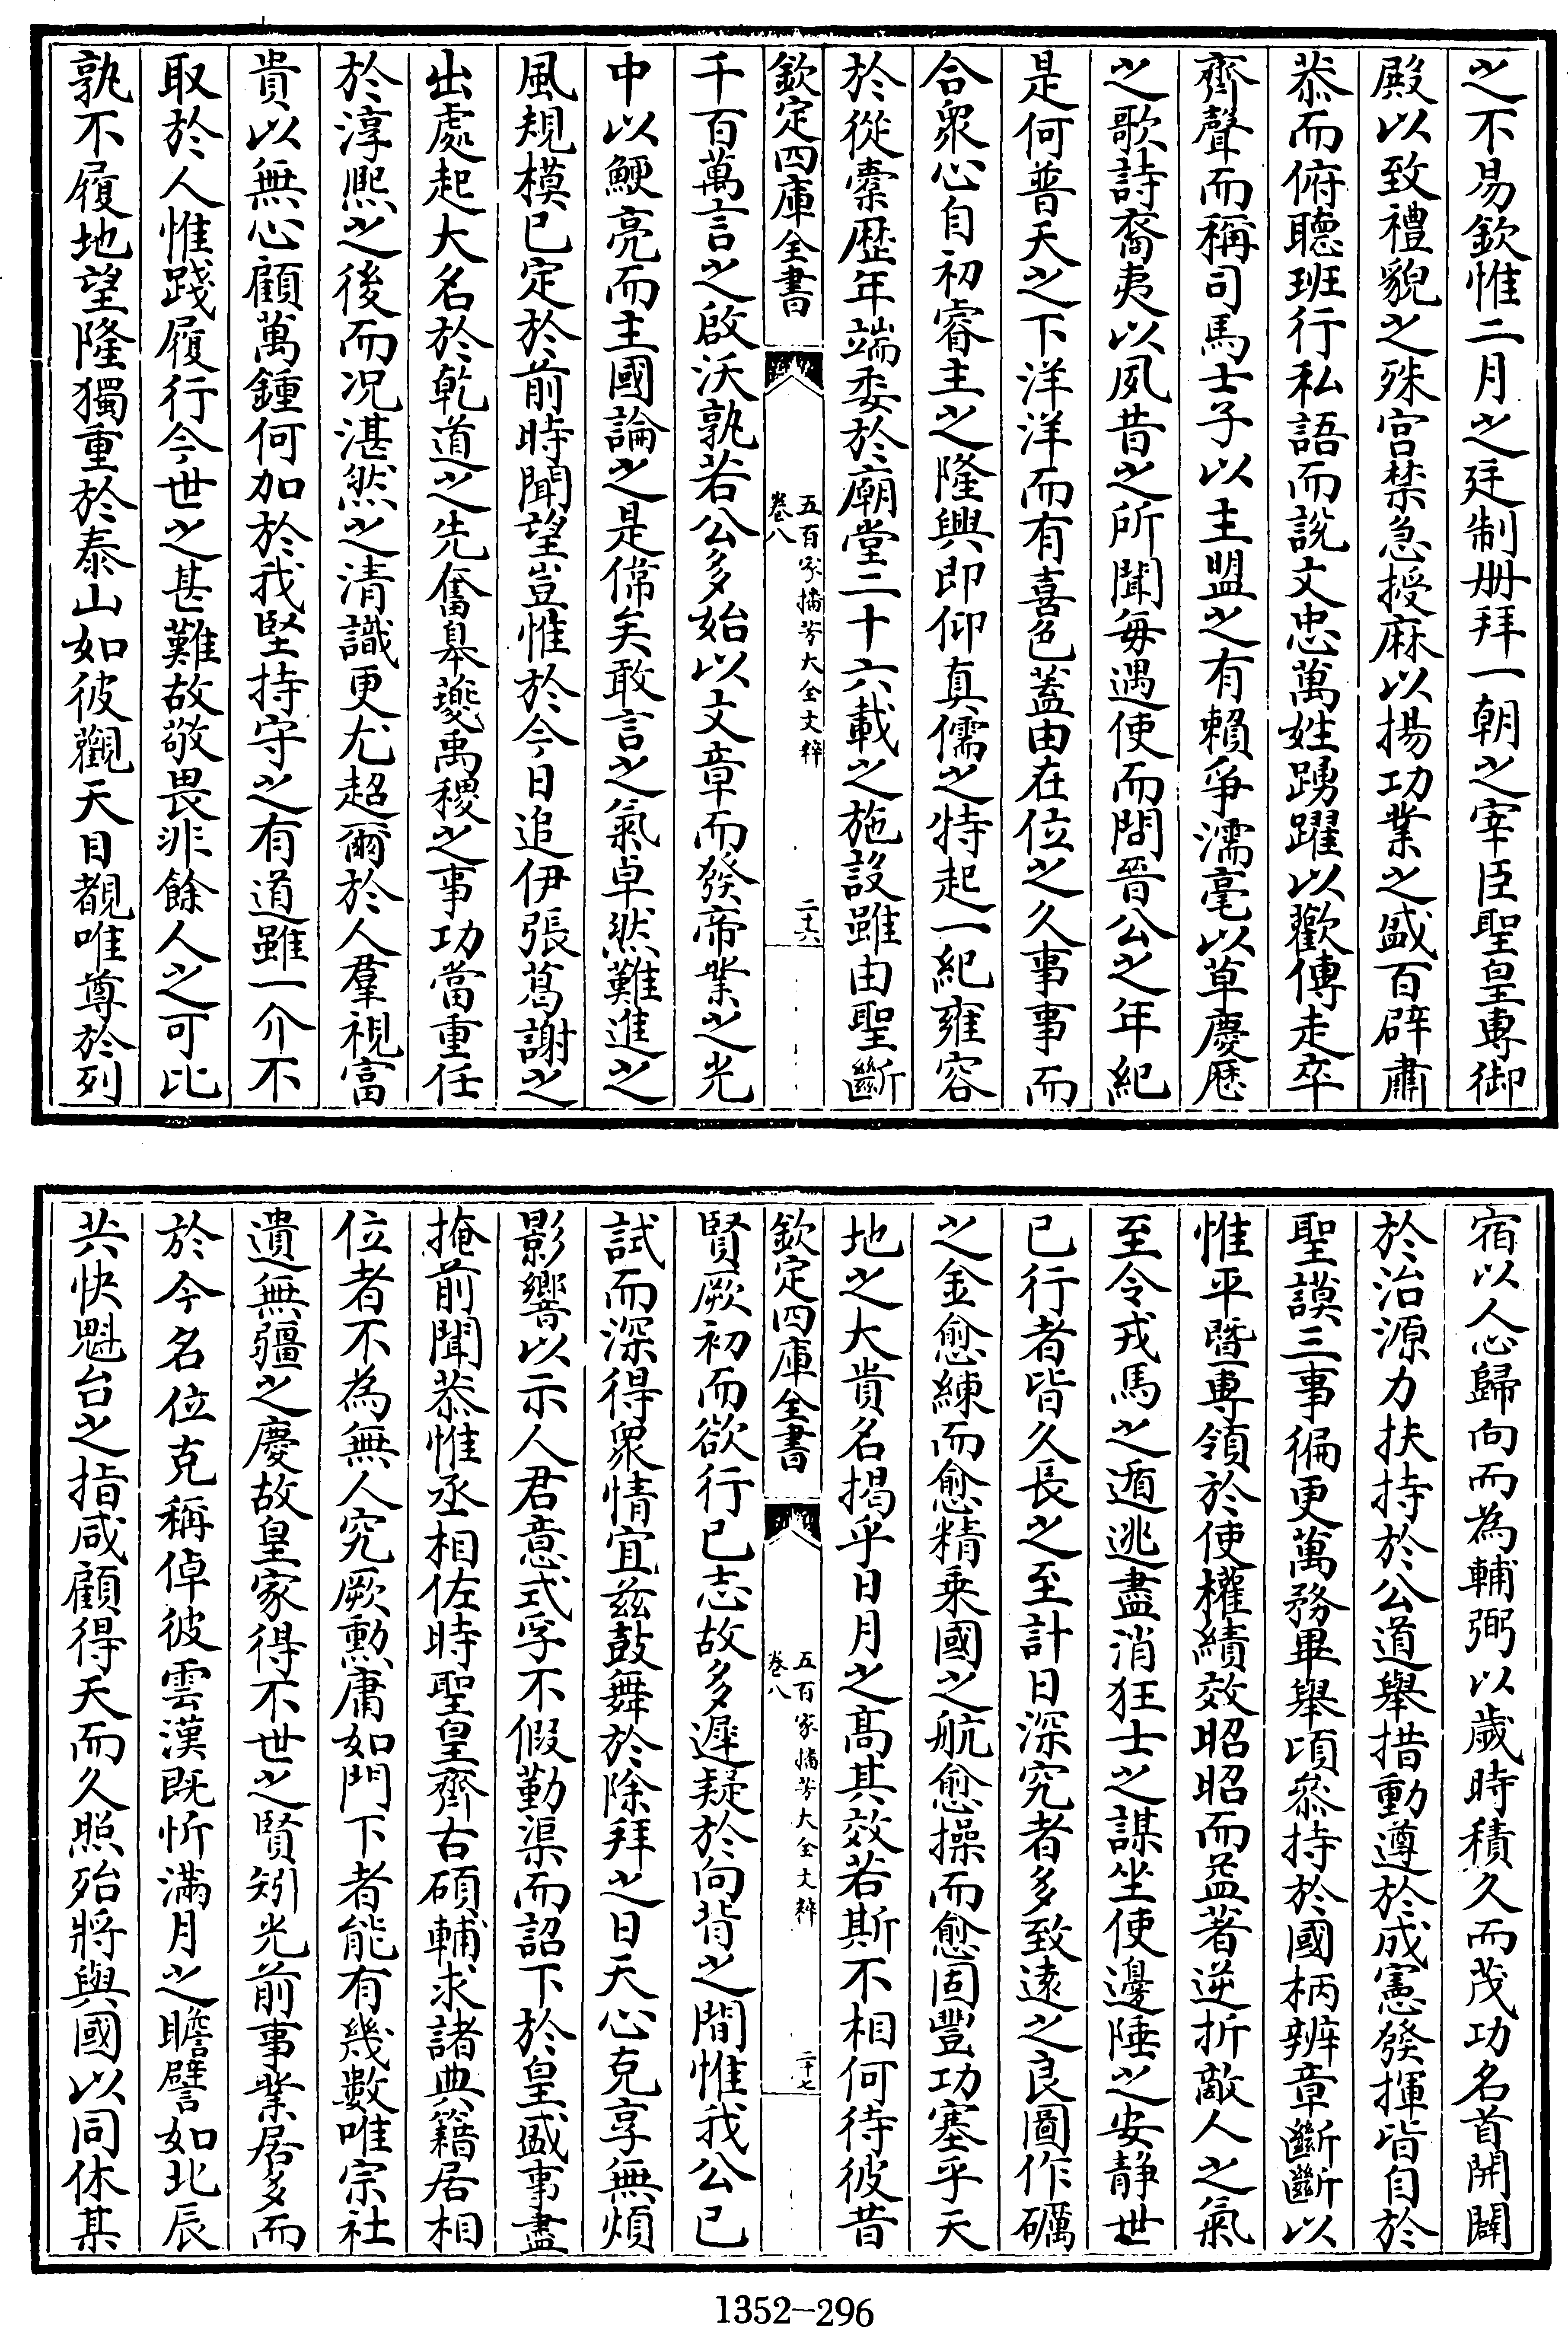 之不易欽惟二月之廷制册拜一朝之宰臣聖皇專御
殿以致禮貌之殊宫禁急授麻以揚功業之盛百辟肅
恭而俯聽班行私語而説文忠萬姓踴躍以歡傳走卒
齊聲而稱司馬士子以主盟之有賴爭濡毫以草慶厯
之歌詩裔夷以夙昔之所聞每遇使而問晉公之年紀
是何普天之下洋洋而有喜色蓋由在位之久事事而
合衆心自初睿主之隆興即仰真儒之特起一紀雍容
於從橐歷年端委於廟堂二十六載之施設雖由聖斷
欽定四庫全書
五百家播芳大全文粹
卷八
二十六
千百萬言之啟沃孰若公多始以文章而發帝業之光
中以鯁亮而主國論之是儒矣敢言之氣卓然難進之
風規模已定於前時聞望豈惟於今日追伊張葛謝之
出處起大名於乾道之先奮皋夔禹稷之事功當重任
於淳熙之後而况湛然之清識更尤超爾於人羣視富
貴以無心顧萬鍾何加於我堅持守之有道雖一介不
取於人惟踐履行今世之甚難故敬畏非餘人之可比
孰不履地望隆獨重於泰山如彼觀天目覩唯尊於列
宿以人心歸向而為輔弼以歲時積久而茂功名首開闢
於治源力扶持於公道舉措動遵於成憲發揮皆自於
聖謨三事徧更萬務畢舉頃叅持於國柄辨章斷斷以
惟平暨專領於使權績效昭昭而益著逆折敵人之氣
至令戎馬之遁逃盡消狂士之謀坐使邊陲之安静世
已行者皆久長之至計日深究者多致遠之良圖作礪
之金愈練而愈精乗國之航愈操而愈固豐功塞乎天
地之大貴名揭乎日月之高其效若斯不相何待彼昔
欽定四庫全書
五百家播芳大全文粹
卷八
二十七
賢厥初而欲行已志故多遲疑於向背之間惟我公已
試而深得衆情宜兹鼓舞於除拜之日天心克享無煩
影響以示人君意式孚不假勤渠而詔下於皇盛事盡
掩前聞恭惟丞相佐時聖皇齊古碩輔求諸典籍居相
位者不為無人究厥勲庸如門下者能有幾數唯宗社
遺無疆之慶故皇家得不世之賢矧光前事業居多而
於今名位克稱倬彼雲漢既忻滿月之瞻譬如北辰
共快魁台之指咸顧得天而久照殆將與國以同休某
1352-296